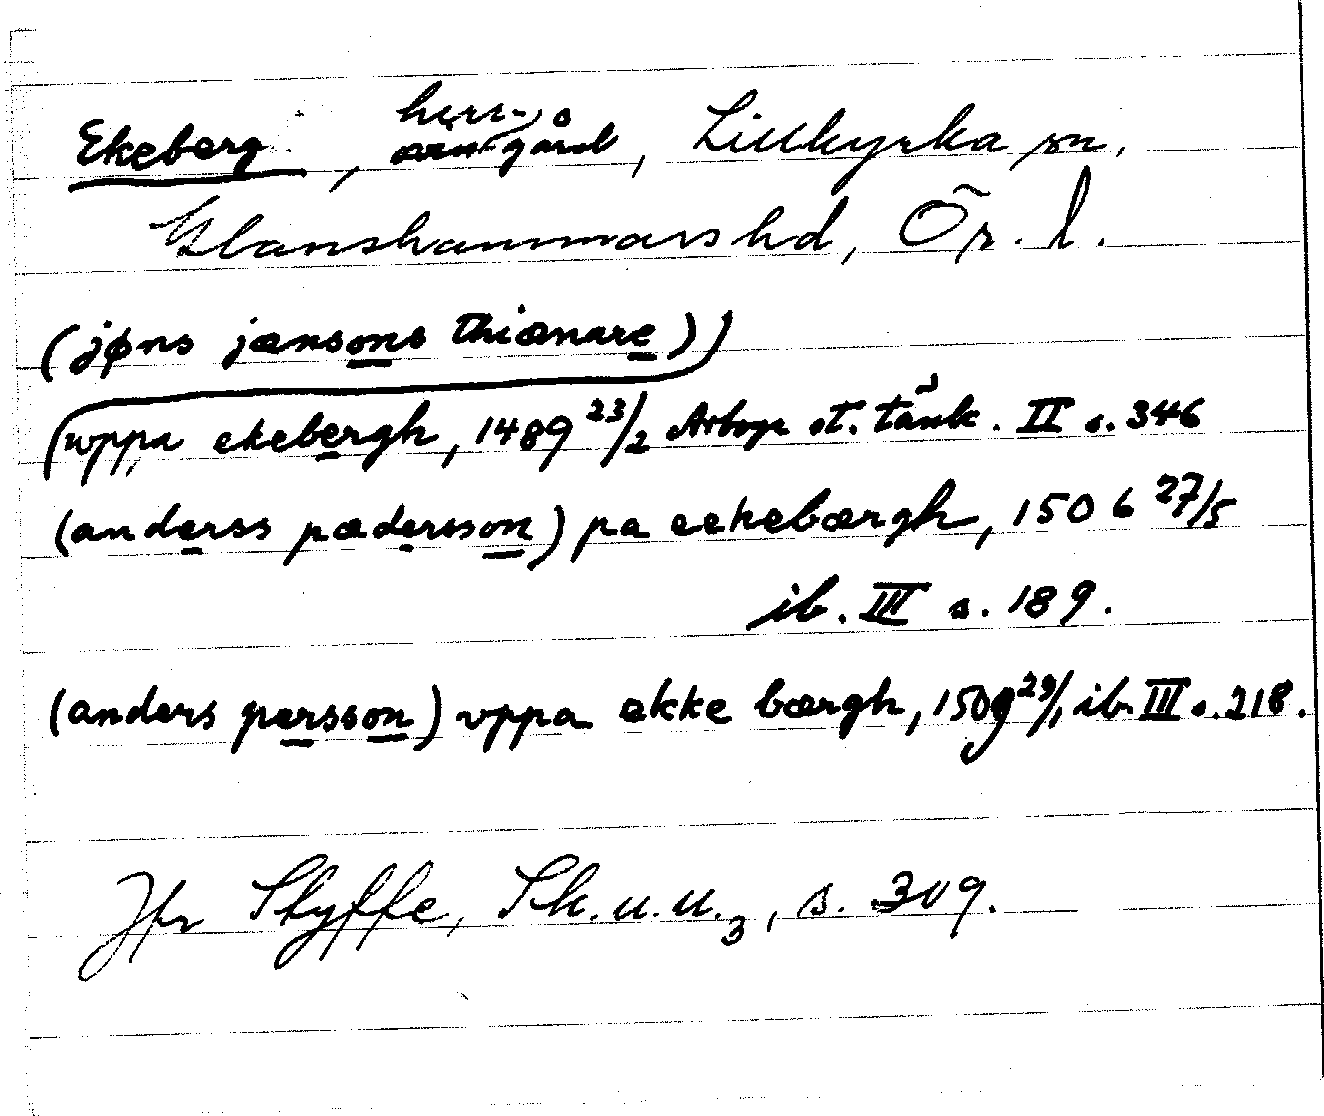 Ekeberg, herrgård, Lillkyrka sn,
Glanshammars hd, Ör. l.
(jøns jænsons thiænare))
(uppa ekebergh, 1489 23/2 Arboga st. tänk. II s. 346
(anderss pædersson) pa eekebærgh, 1506 27/5
ib. III s. 189.
(anders persson) vppa ekke bærgh, 1509 29/1 ib. III s. 218.
Jfr Styffe, Sk. u. u. 3, s. 309.